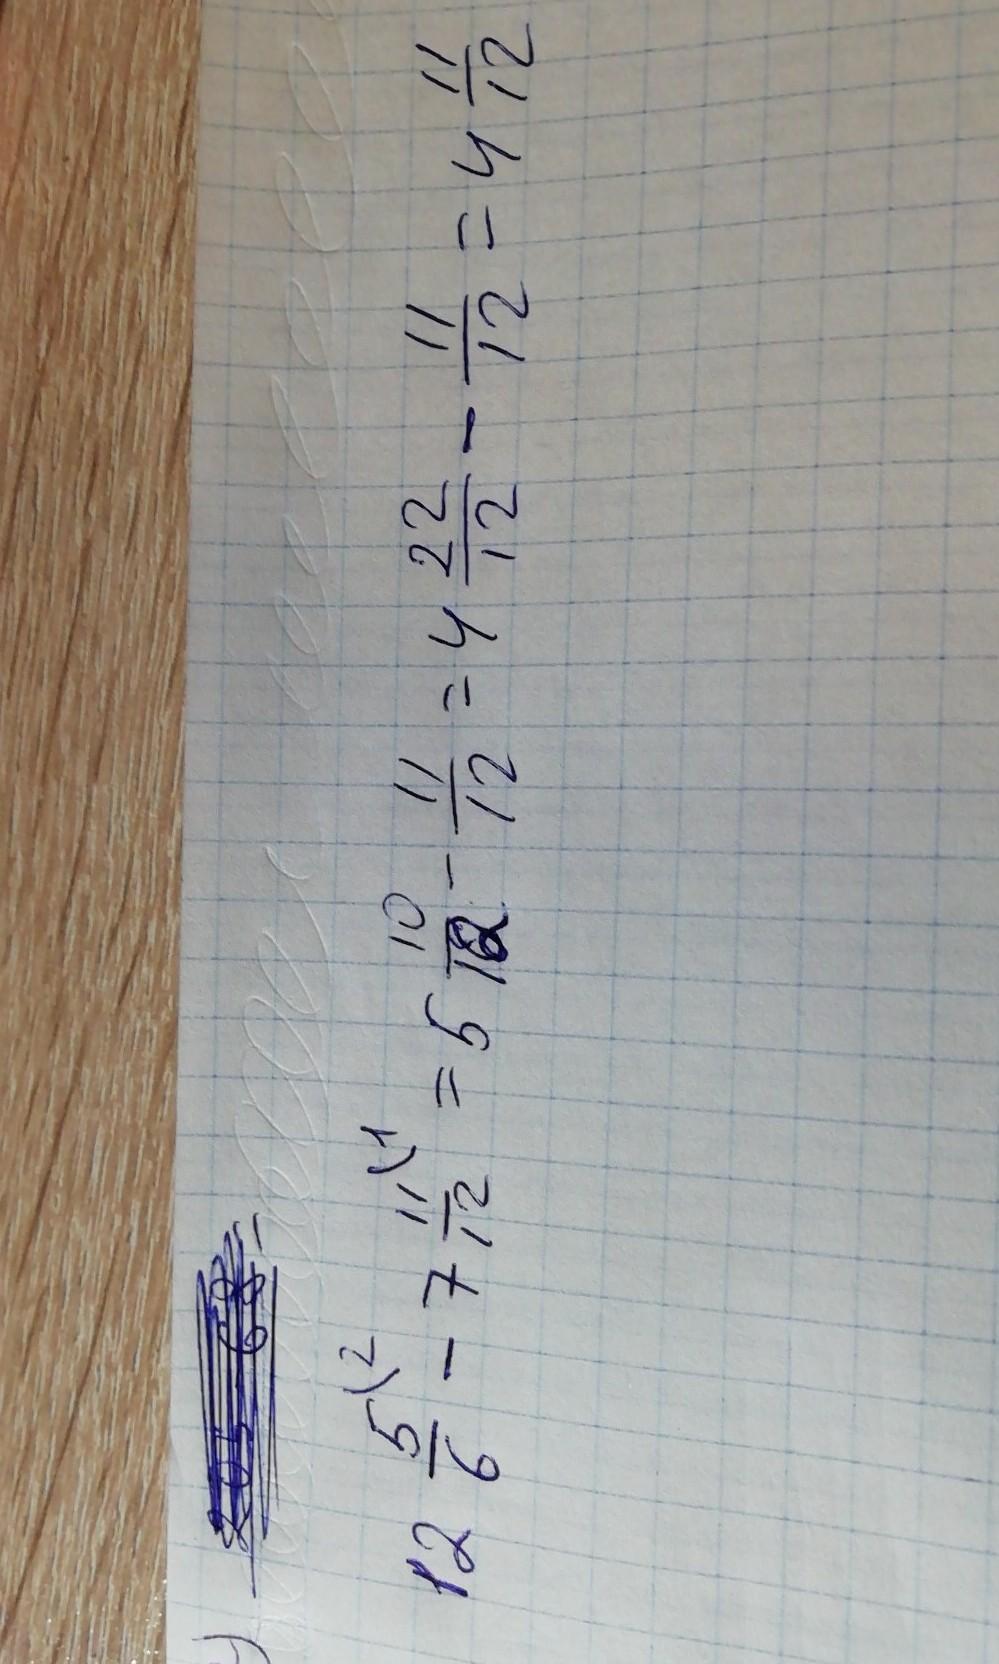 4)
12 5/6 \2 - 7 11/12 \1 = 5 10/12 - 11/12 = 4 22/12 - 11/12 = 4 11/12